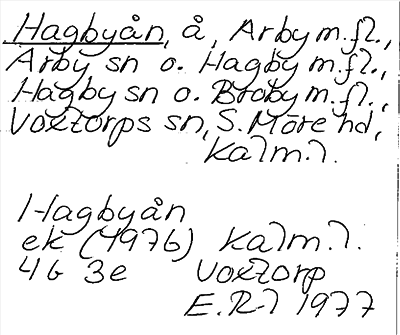 Hagbyån, å, Arby m.fl.,
Arby sn o. Hagby m.fl.,
Hagby sn o. Broby m.fl.,
Voxtorps sn, S. Möre hd,
Kalm.l.
Hagbyån
ek (1976) Kalm.l.
4G 3e Voxtorp
E.Rl 1977